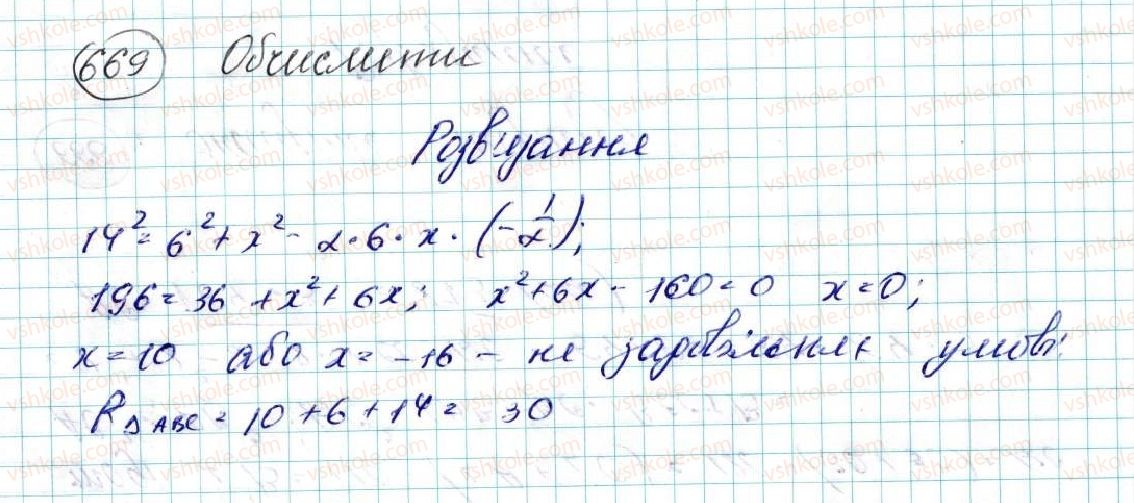 669 Обчислити
Розв'язання
14² = 6² + x² - 2·6·x·(-1/2);
196 = 36 + x² + 6x; x² + 6x - 160 = 0 x = 0;
x = 10 або x = -16 - не задовольняє умові
P△ABC = 10 + 6 + 14 = 30